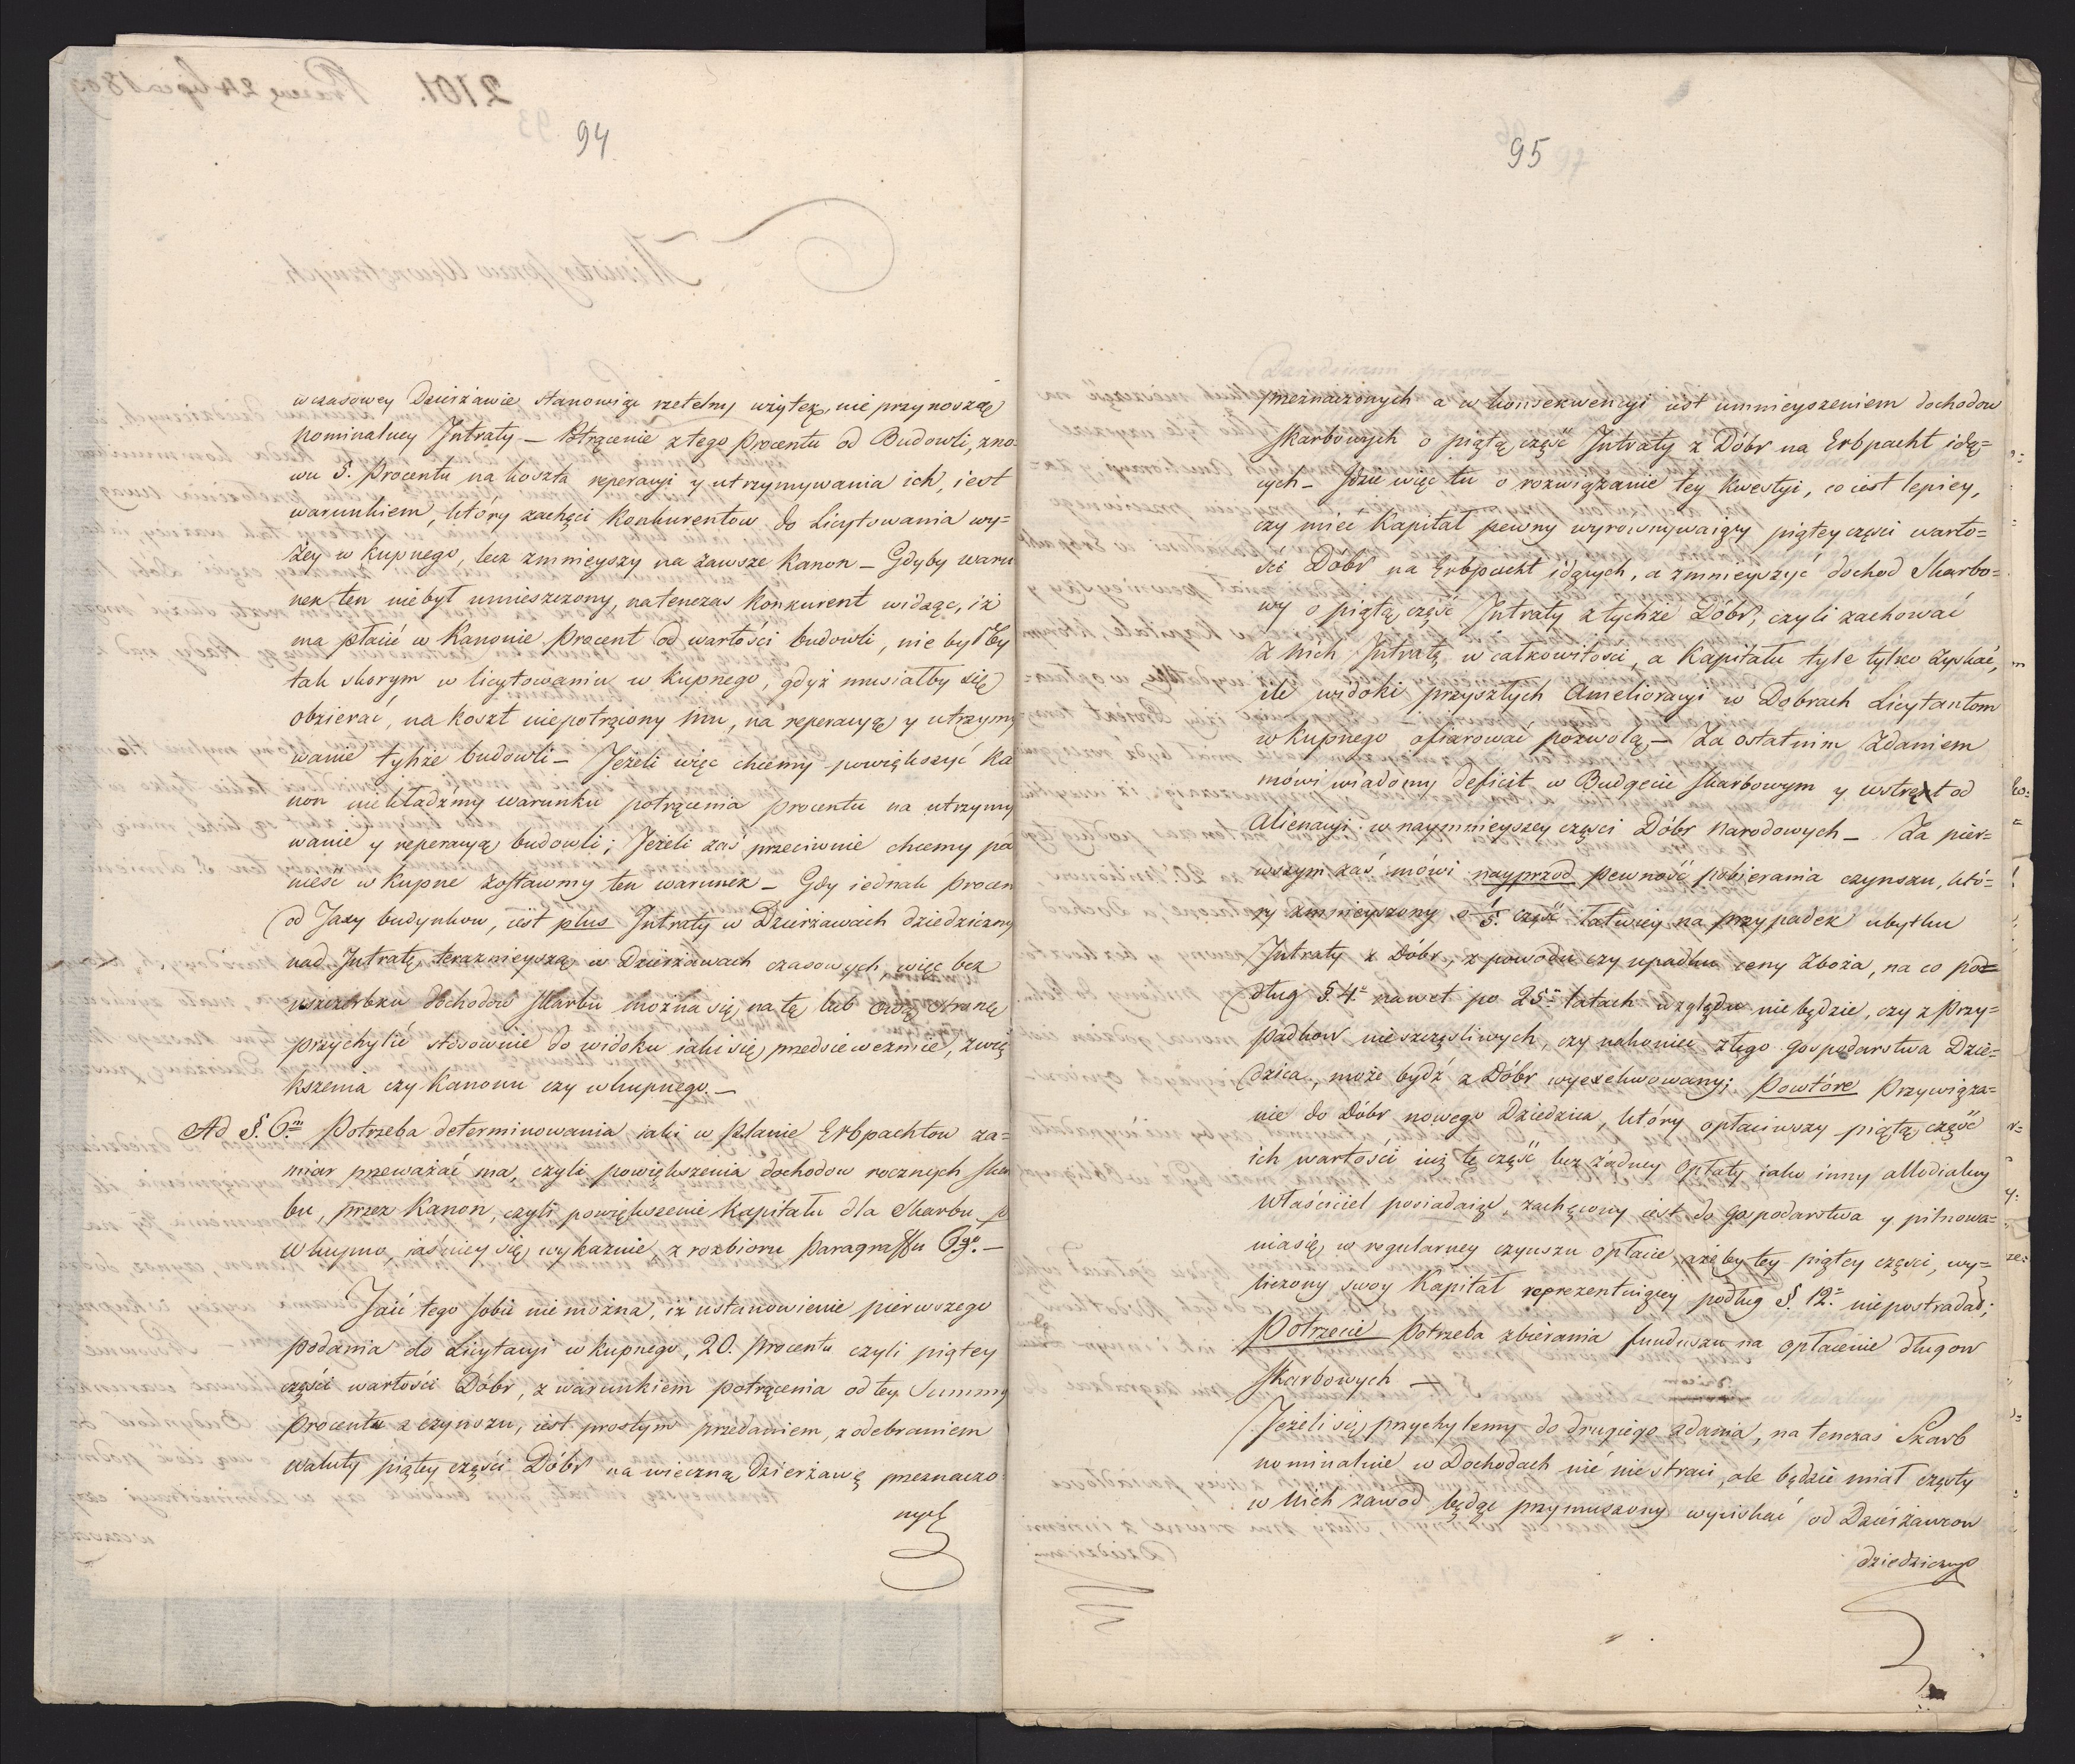 94
w czasowey Dzierżawie stanowiąc rzetelny użytek, nie przynoszą
nominalney Intraty – Strącenie z tego procentu od Budowli, zno-
wu 5. Procentu na koszta reperacyi y utrzymywania ich, iest
warunkiem, który zachęci Konkurentow do Licytowania wy=
żey wkupnego, lecz zmnieyszy na zawsze Kanon – Gdyby waru
nek ten niebył umieszczony, natenczas Konkurent widząc, iż
ma płacić w Kanonie procent od wartości budowli, nie byłby
tak skorym w licytowaniu wkupnego, gdyż musiałby się
obzierać, na koszt niepotrącony mu, na reperacyą y utrzymy
wanie tychże budowli – Jeżeli więc chcemy powiększyć Ka
non niekładźmy warunku potrącenia procentu na utrzymy
wanie y reperacyą budowli; Jeżeli zaś przeciwnie chcemy pod
nieść wkupne zostawmy ten warunek – Gdy iednak procen
od Taxy budynkow, iest plus Intraty w Dzierżawach dziedziczny
nad Intratę terazmieyszą w Dzierżawach czasowych, więc bez
uszczerbku dochodow Skarbu można się na tę lub ową stronę
przychylić stosownie do widoku iaki się przedsieweźmie, zwię
kszenia czy Kanonu czy wkupnego. –
Ad §. 6.m Potrzeba determinowania iaki w planie Erbpachtow za=
miar przeważać ma, czyli powiększenia dochodow rocznych Skar
bu, przez Kanon, czyli powiększenie Kapitału dla Skarbu p
Wkupno, iaśniey się wykaznie z rozbioru Paragraffu 6.go –
Taić tego sobie nie można, iż ustanowienie pierwszego
podania do Licytacyi wkupnego, 20. Procentu czyli piątey
części wartości Dóbr, z warunkiem potrącenia od tey Summy
procentu z czynszu, iest prostym przedaniem, z odebraniem
waluty piątey części Dóbr na wieczną Dzierżawę przeznaczo
nych
95
przeznaczonych a w konsekwencyi iest umnieyszeniem dochodow
Skarbowych o piątą część Intraty z Dóbr na Erbpacht idą=
cych – Idzie więc tu o rozwiązanie tey Kwestyi, co iest lepiey,
czy mieć Kapitał pewny wyrownywaiący piątey części warto=
ści Dóbr na Erbpacht idących, a zmnieyszyć dochod Skarbo=
wy o piątą część Intraty z tychże Dóbr, czyli zachować
z nich Intratę w całkowitości, a Kapitału tyle tylko zyskać,
ile widoki przyszłych Amelioracyi w Dobrach Licytantom
wkupnego ofiarować pozwolą – Za ostatnim zdaniem
mówi wiadomy deficit w Budgecie Skarbowym y wstręt od
Alienacyi w naymnieyszey części Dóbr Narodowych – Za pier=
wszym zaś mówi nayprzod pewność pobierania czynszu, któ=
ry zmnieyszony o 1/5. część łatwiey na przypadek ubytku
Intraty z Dóbr, z powodu czy upadku ceny Zboża, na co po=
dług §. 4. nawet po 25 latach względu nie będzie, czy z przy=
padkow nieszczęśliwych, czy nakoniec złego gospodarstwa Dzie=
dzica, może bydź z Dóbr wyexekwowany; Powtóre Przywiąza=
nie do Dóbr nowego Dziedzica, który opłaciwszy piątą część
ich wartości iuż tę część bez żadney opłaty iako inny allodialny
Właściciel posiadaiąc, zachęcony iest do Gospodarstwa y pilnowa=
nia się w regularney czynszu opłacie, ażeby tey piątey części, wy=
liczony swoy Kapitał reprezentuiącey podług §. 12. niepostradał;
Potrzecie Potrzeba zbierania funduszu na opłacenie długow
Skarbowych –
Jeżeli się przychylemy do drugiego zdania, na tenczas Skarb
nominalnie w Dochodach nic nie straci, ale będzie miał częsty
w nich zawod będąc przymuszony wyciskać od Dzierżawcow
dziedzicznych